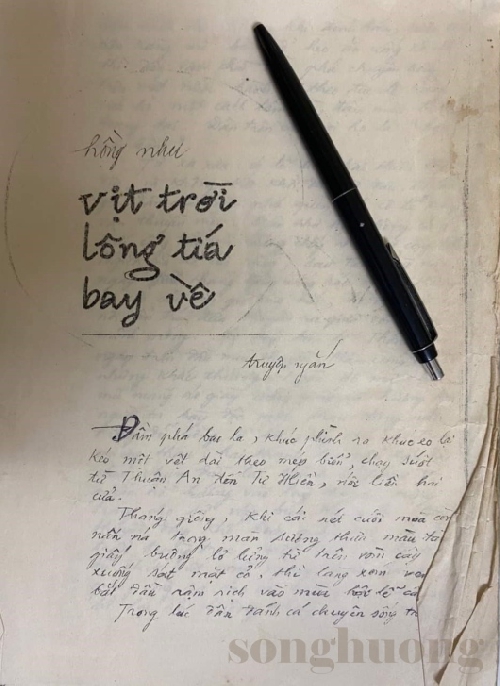 hồng nhu
vịt trời
lông tía
bay về
truyện ngắn
Đầm phá bao la, khúc phình ra khúc eo lại
kéo một vệt dài theo mép biển, chạy suốt
từ Thuận An đến Tư Hiền, nối liền hai
cửa.
Tháng giêng, khi cái rét cuối mùa còn
trong màn sương
giấy buông lơ lửng từ trên vòm cây
xuống sát mặt cỏ, thì làng xóm
bắt đầu rậm rịch vào mùa
Trong lúc dân đánh cá chuyên sống
songhuong